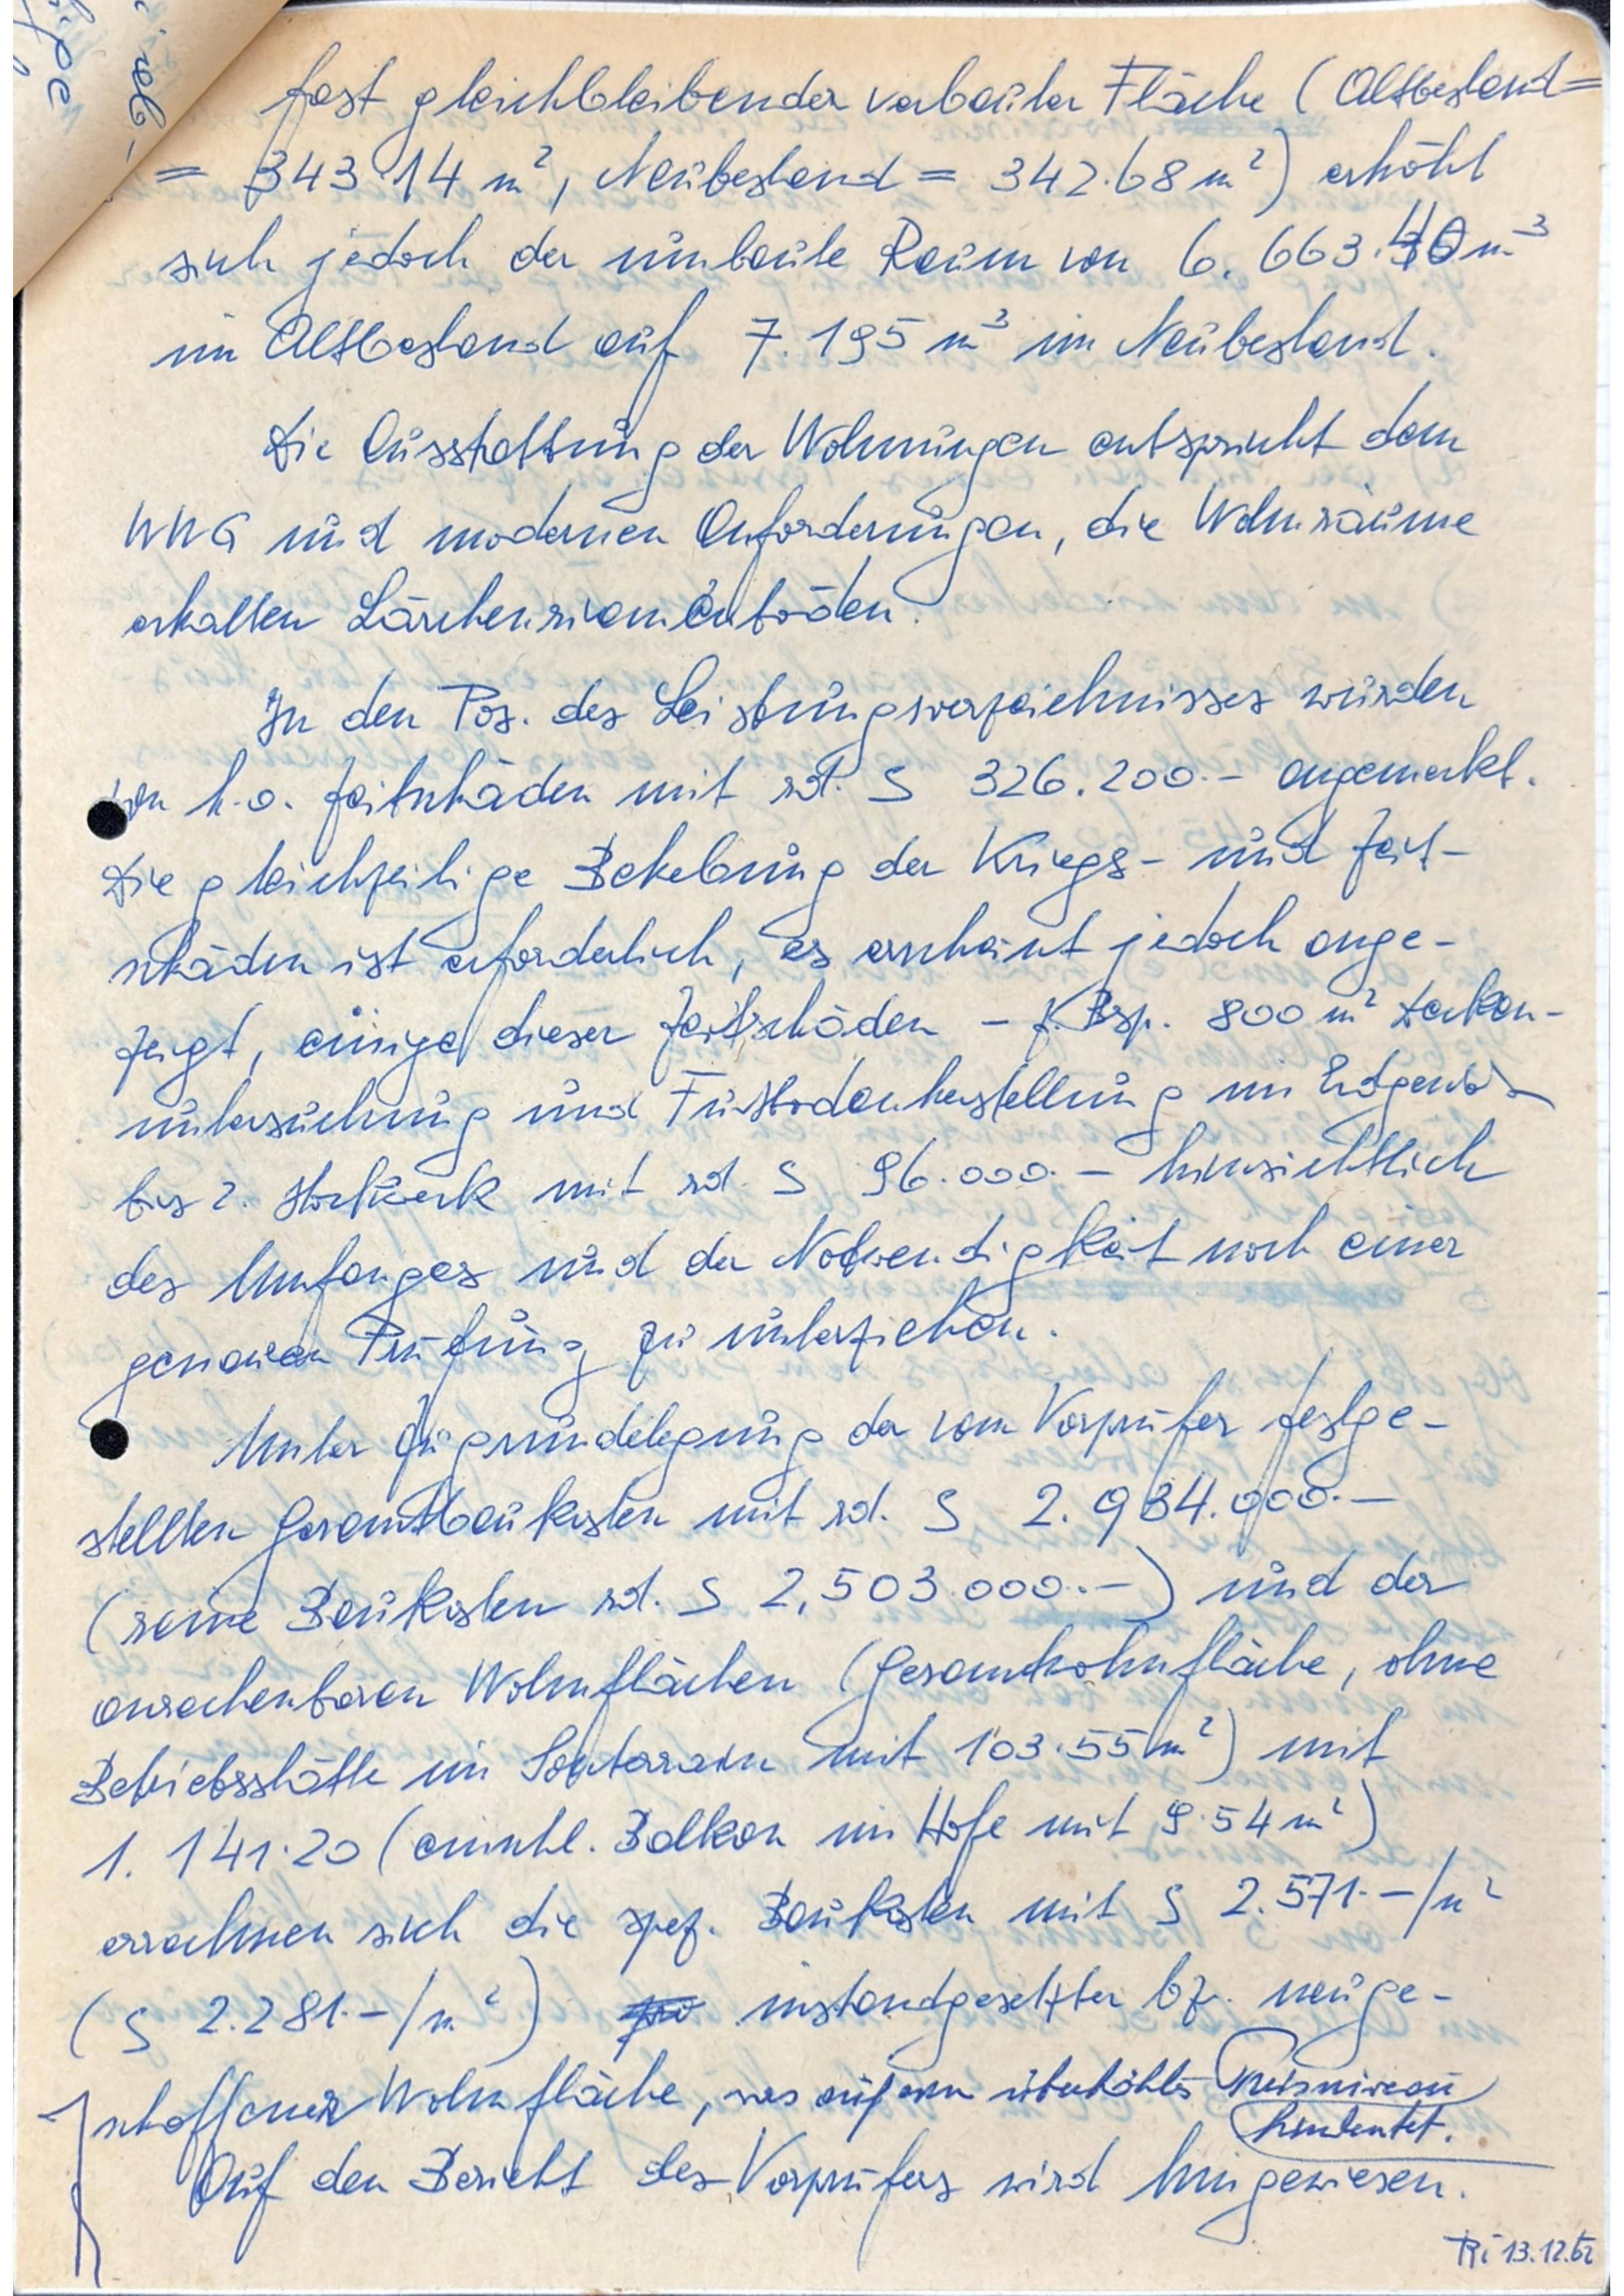 fast gleichbleibender verbauter Fläche (Altbestand =
= 343.14 m², Neubestand = 342.68 m²) erhöht
sich jedoch der umbaute Raum von 6.663.40 m³
im Altbestand auf 7.195 m³ im Neubestand.
Die Ausstattung der Wohnungen entspricht dem
WWG und modernen Anforderungen, die Wohnräume
erhalten Lärchenriemenböden.
In den Pos. des Leistungsverzeichnisses wurden
von h.o. Zeitschäden mit rd. S 326.200.- angemerkt.
Die gleichzeitige Behebung der Kriegs- und Zeit-
schäden ist erforderlich, es erscheint jedoch ange-
zeigt, einige dieser Zeitschäden - z. Bsp. 800 m² Decken-
untersuchung und Fußbodenherstellung im Erdgeschoß
bis 2. Stockwerk mit rd. S 96.000.- hinsichtlich
des Umfanges und der Notwendigkeit noch einer
genauen Prüfung zu unterziehen.
Unter Zugrundelegung der vom Vorprüfer festge-
stellten Gesamtbaukosten mit rd. S 2.934.000.-
(reine Baukosten rd. S 2,503.000.-) und der
anrechenbaren Wohnflächen (Gesamtwohnfläche, ohne
Betriebsstätte im Souterrain mit 103.55 m²) mit
1.141.20 (einschl. Balkon im Hofe mit 9.54 m²)
errechnen sich die spez. Baukosten mit S 2.571.-/m²
(S 2.281.-/m²) pro instandgesetzter bz. neuge-
schaffener Wohnfläche, was auf ein überhöhtes Preisniveau
hindeutet.
Auf den Bericht des Vorprüfers wird hingewiesen.
Ri 13.12.62